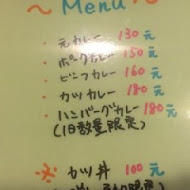 ～ Menu ～
元カレー 130元
ポークカレー 150元
ビーフカレー 160元
カツカレー 180元
ハンバーグカレー 180元
(1日数量限定)
※ カツ丼 100元